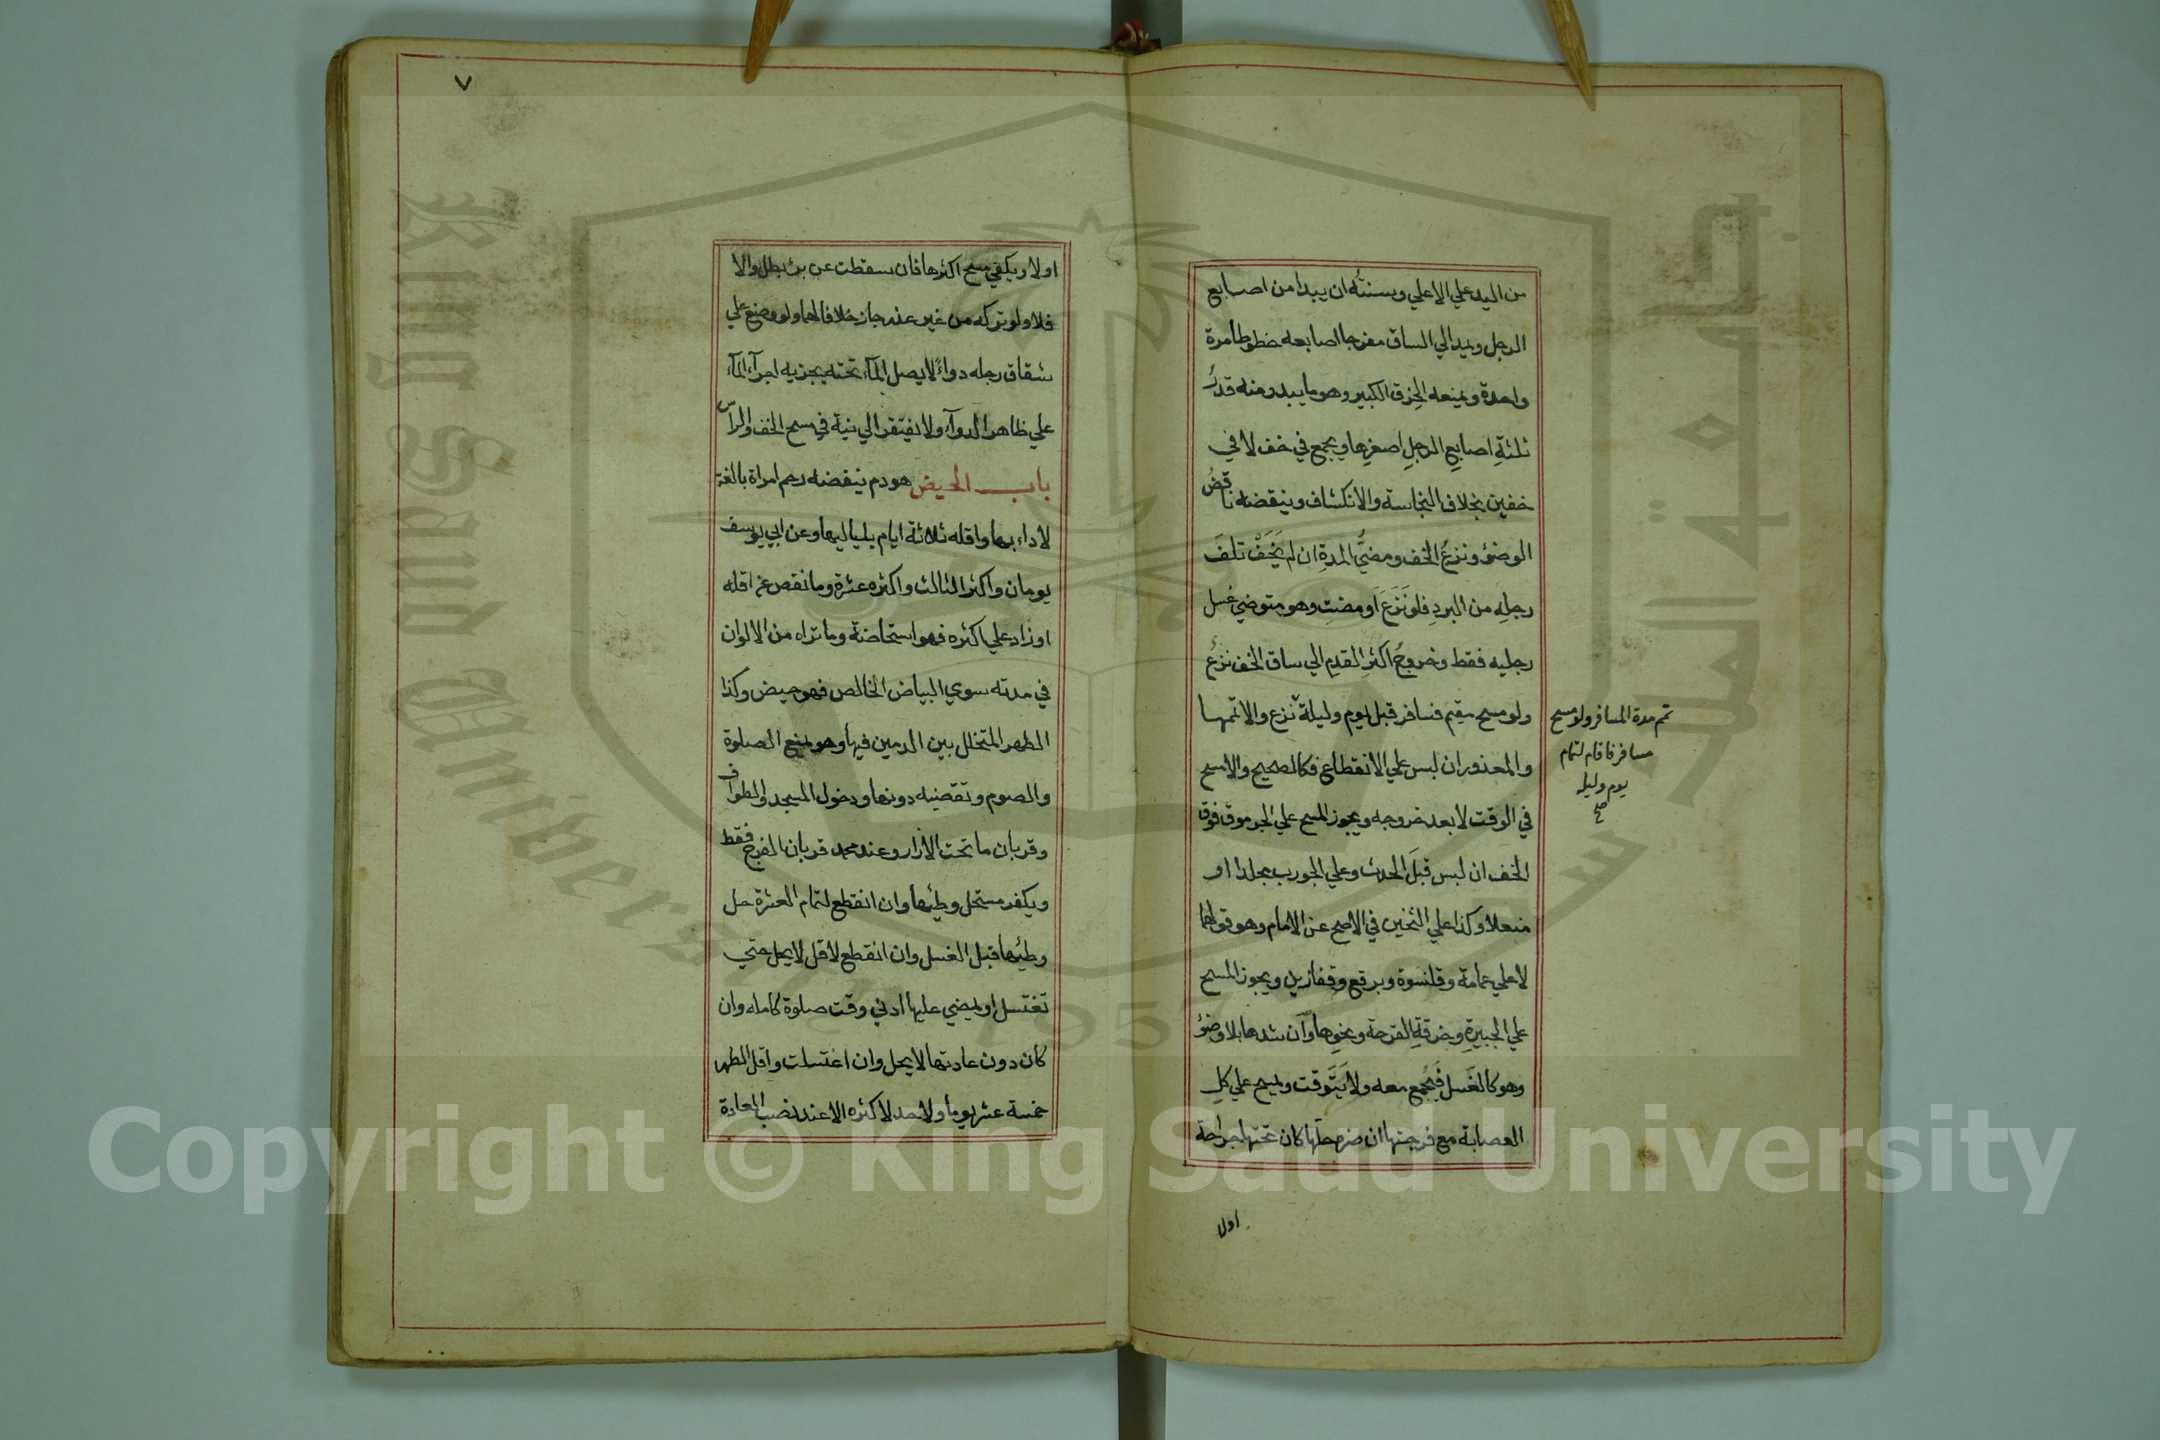 من اليد علي الاعلي وسنتُه ان يبدا من اصابع
الرجل ويمد الي الساق مفرجا اصابعه خطوطا مرة
واحدة ويمنعه الخِرق الكبير وهو ما يبدو منه قدرُ
ثلثةِ اصابعِ الرجلِ اصغرِها ويجمع في خف لا في
خفين بخلاف النجاسة والانكشاف وينقضه ناقضُ
الوضوُ ونزعُ الخف ومضيُّ المدةِ ان لم يَخَفْ تلفَ
رجلِه من البردِ فلو نَزَعَ اَو مضتِ وهو متوضي غسل
رجليه فقط وخروجُ اكثرِ القدمِ الي ساق الخف نزعُ
ولو مسح مقيم فسافر قبل يوم وليلة نزع والا تمها
والمعذور ان لبس علي الانقطاع فكالصحيح والا مسح
في الوقت لا بعد خروجه ويجوز المسح علي الجرموق فوق
الخف ان لبس قبلَ الحدث وعلي الجورب مجلدا او
منعلا وكذا علي الثخين في الاصح عن الامام وهو قولهما
لا علي عمامة وقلنسوة وبرقع وقفازين ويجوز المسح
علي الجبيرةِ وخرقةِ القرحة ونحوِها وَاَن شدها بلا وضوُ
وهو كالغَسل فيُجمع معه ولا يَتَوقت ويمسح علي كلِ
العصابة مع فرجتها ان ضره حلها كان تحتها جراحة
تم مدة المسافر ولو مسح
مسافر فاقام لتمام
يوم وليله
صح
اولا
٧
اولا ويكفي مسح اكثرها فان سقطت عن برئ بطل والا
فلا ولو تركه من غير عذر جاز خلافا لهما ولو وضع علي
شقاق رجله دواءً لا يصل المآء تحته يجزيه اجرآء المآء
علي ظاهر الدوآء ولا يفتقر الي نية في مسح الخف والراس
باب الحيض هو دم ينفضه رحم امراة بالغة
لا داء بها واقله ثلاثة ايام بلياليها وعن ابي يوسف
يومان واكثر الثالث واكثره عشرة وما نقص عن اقله
او زاد علي اكثره فهو استحاضة وما تراه من الالوان
في مدته سوي البياض الخالص فهو حيض وكذا
الطهر المتخلل بين الدمين فيها وهو يمنع الصلوة
والصوم وتقضيه دونها ودخول المسجد والطواف
وقربان ما تحت الازار وعند محمد قربان الفرج فقط
ويكفر مستحل وطيئها وان انقطع لتمام العشرة حل
وطيئها قبل الغسل وان انقطع لاقل لا يحل حتي
تغتسل او يمضي عليها ادني وقت صلوة كامله وان
كان دون عادتها لا يحل وان اغتسلت واقل الطهر
خمسة عشر يوما ولا حد لاكثره الا عند نصب العادة
King Saud University
جامعة الملك سعود
1957
Copyright © King Saud University